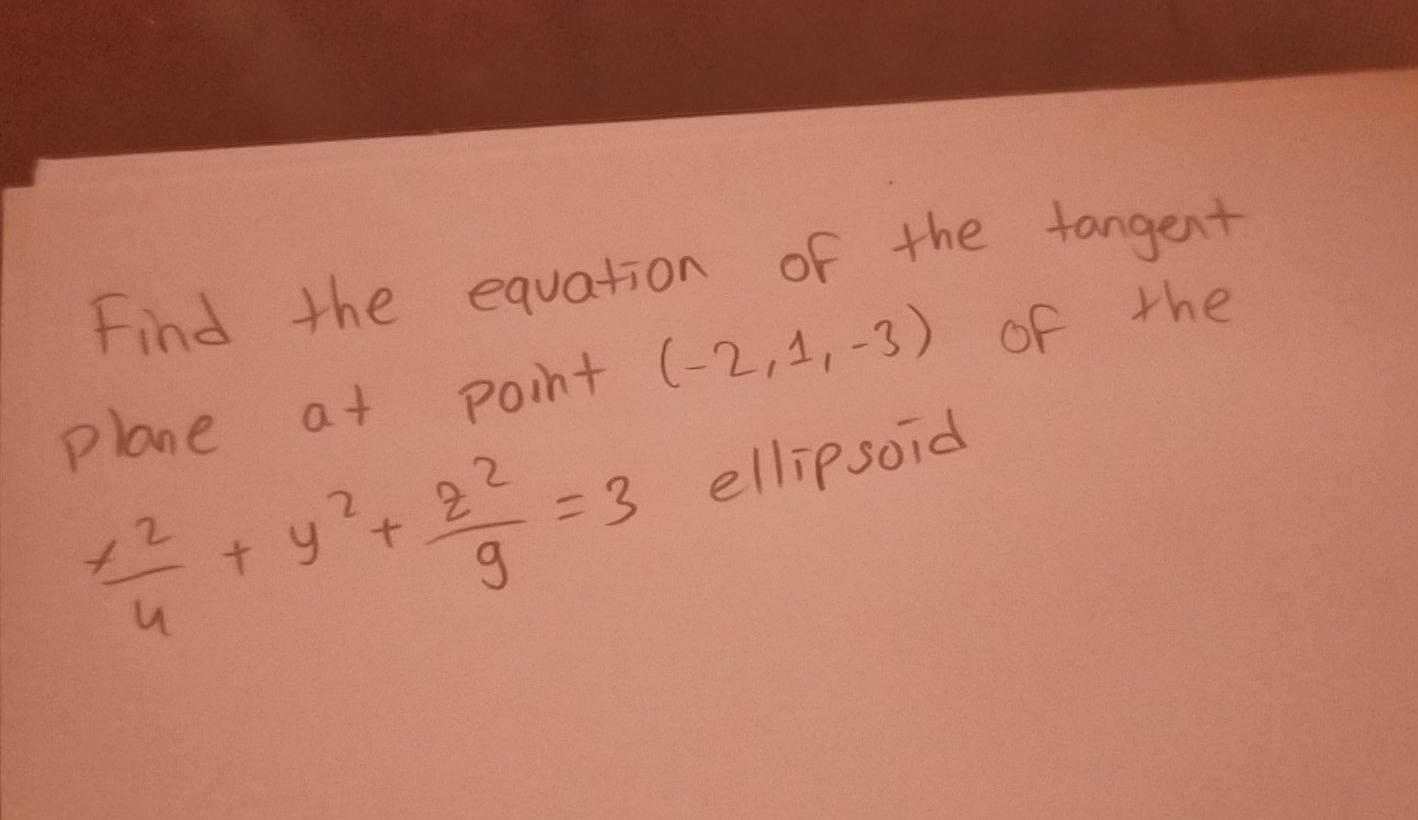 Find the equation of the tangent
plane at point (-2,1,-3) of the
x²/4 + y² + z²/9 = 3 ellipsoid